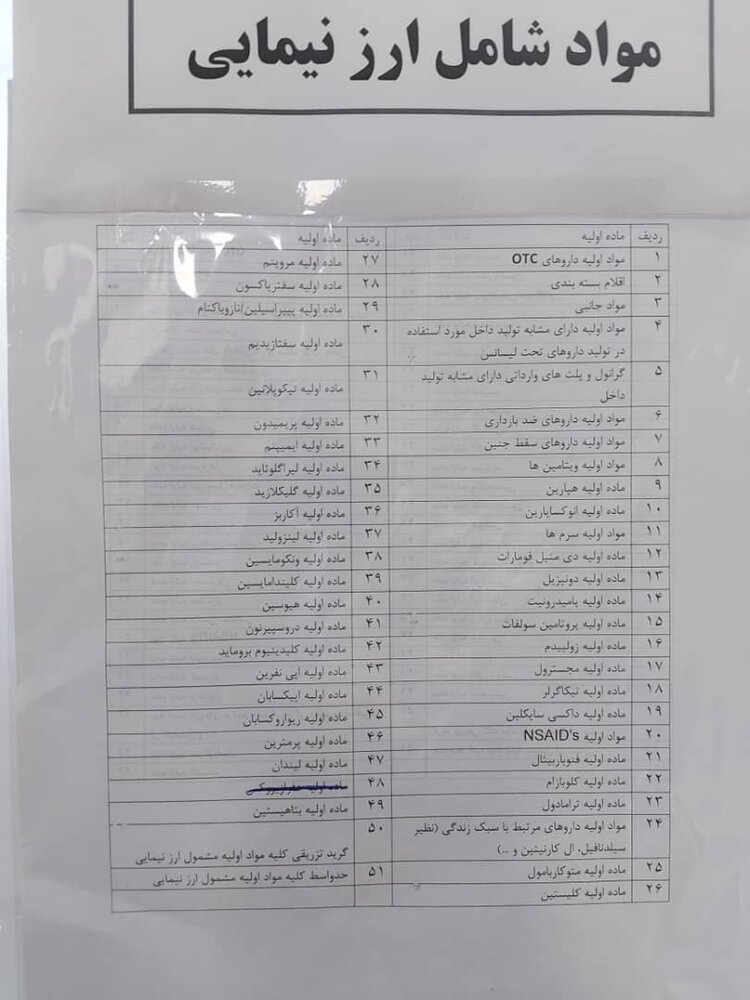 مواد شامل ارز نیمایی
ردیف ماده اولیه
۱ مواد اولیه داروهای OTC
۲ اقلام بسته بندی
۳ مواد جانبی
۴ مواد اولیه دارای مشابه تولید داخل مورد استفاده
در تولید داروهای تحت لیسانس
۵ گرانول و پلت های وارداتی دارای مشابه تولید
داخل
۶ مواد اولیه داروهای ضد بارداری
۷ مواد اولیه داروهای سقط جنین
۸ مواد اولیه ویتامین ها
۹ ماده اولیه هپارین
۱۰ ماده اولیه انوکساپارین
۱۱ مواد اولیه سرم ها
۱۲ ماده اولیه دی متیل فومارات
۱۳ ماده اولیه دونپزیل
۱۴ ماده اولیه پامیدرونیت
۱۵ ماده اولیه پروتامین سولفات
۱۶ ماده اولیه زولپیدم
۱۷ ماده اولیه مجسترول
۱۸ ماده اولیه تیکاگرلر
۱۹ ماده اولیه داکسی سایکلین
۲۰ مواد اولیه NSAID's
۲۱ ماده اولیه فنوباربیتال
۲۲ ماده اولیه کلوبازام
۲۳ ماده اولیه ترامادول
۲۴ مواد اولیه داروهای مرتبط با سبک زندگی (نظیر
سیلدنافیل، ال کارنیتین و ...)
۲۵ ماده اولیه متوکاربامول
۲۶ ماده اولیه کلیستین
ردیف ماده اولیه
۲۷ ماده اولیه مروپنم
۲۸ ماده اولیه سفتریاکسون
۲۹ ماده اولیه پیپراسیلین/تازوباکتام
۳۰ ماده اولیه سفتازیدیم
۳۱ ماده اولیه تیکوپلانین
۳۲ ماده اولیه پریمیدون
۳۳ ماده اولیه ایمیپنم
۳۴ ماده اولیه لیراگلوتاید
۳۵ ماده اولیه گلیکلازید
۳۶ ماده اولیه آکاربز
۳۷ ماده اولیه لینزولید
۳۸ ماده اولیه ونکومایسین
۳۹ ماده اولیه کلیندامایسین
۴۰ ماده اولیه هیوسین
۴۱ ماده اولیه دروسپیرنون
۴۲ ماده اولیه کلیدینیوم بروماید
۴۳ ماده اولیه اپی نفرین
۴۴ ماده اولیه اپیکسابان
۴۵ ماده اولیه ریواروکسابان
۴۶ ماده اولیه پرمترین
۴۷ ماده اولیه لیندان
۴۸ ماده اولیه
۴۹ ماده اولیه بتاهیستین
۵۰ گرید تزریقی کلیه مواد اولیه مشمول ارز نیمایی
۵۱ حدواسط کلیه مواد اولیه مشمول ارز نیمایی